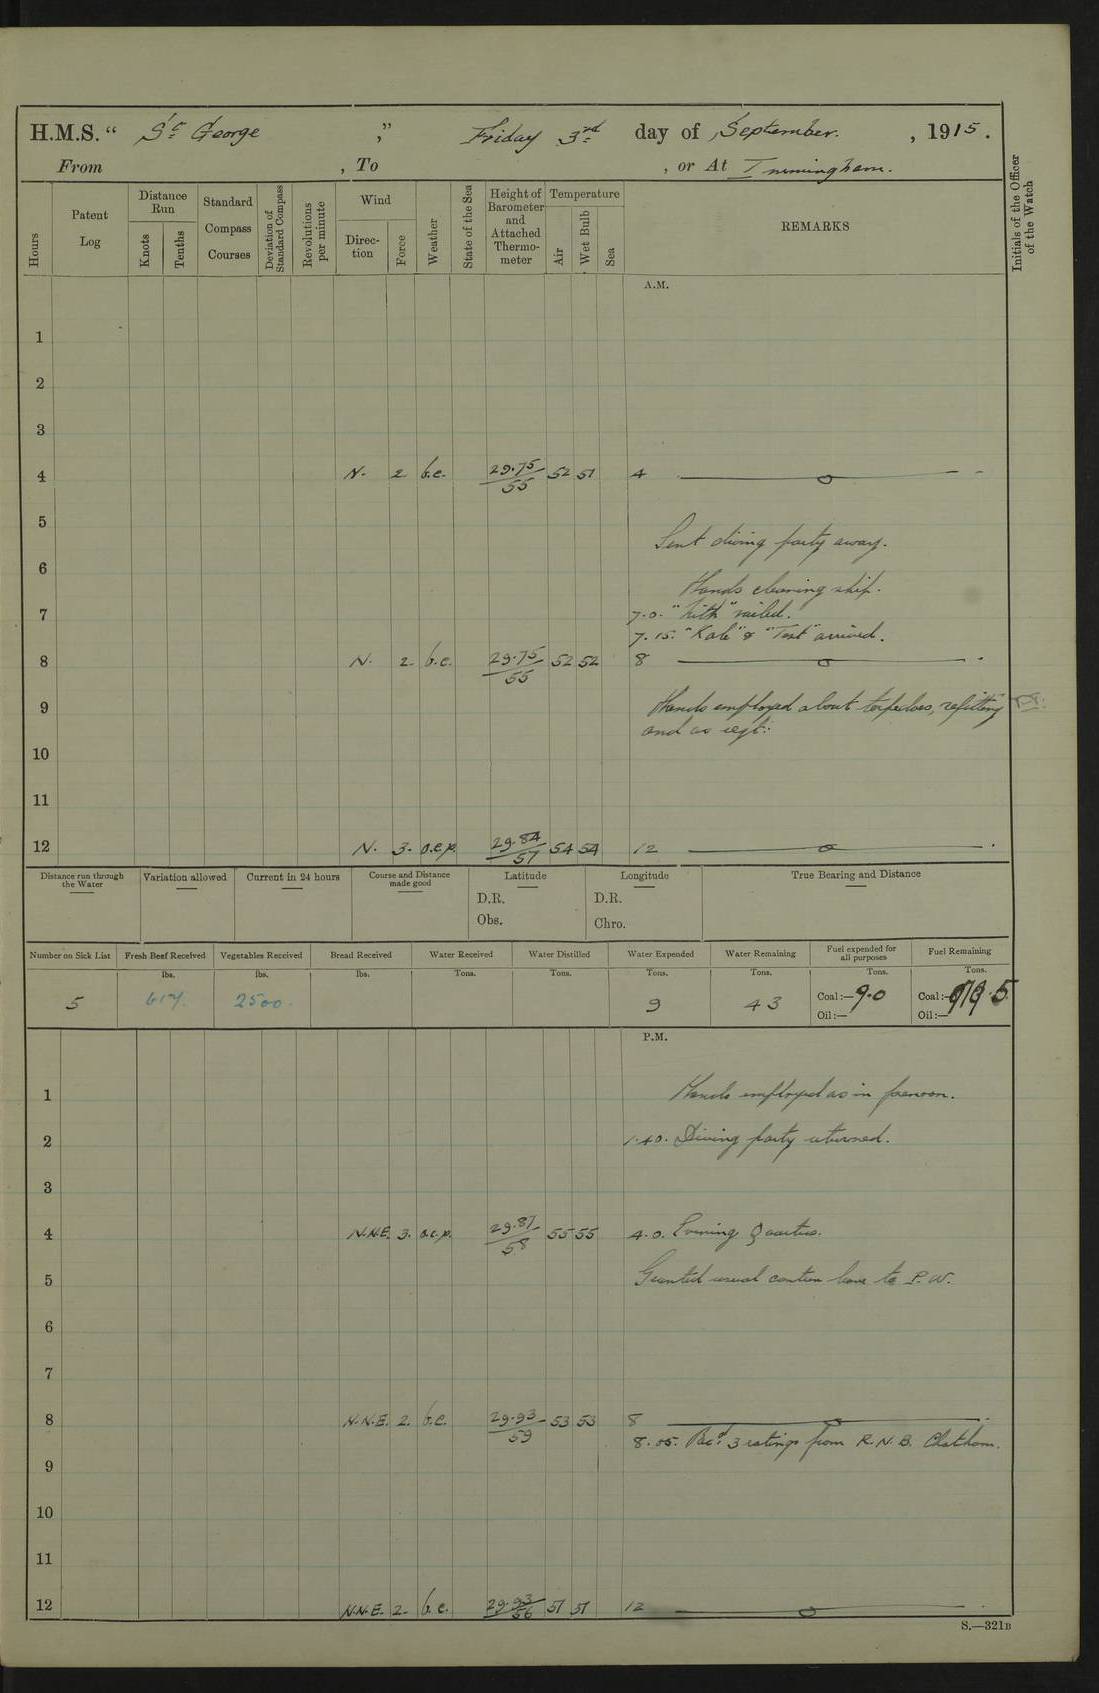 H.M.S. "St George," Friday 3rd day of September. , 1915.
From , To , or At Immingham.
Hours
Patent Log
Distance Run
Knots
Tenths
Standard Compass Courses
Deviation of Standard Compass
Revolutions per minute
Wind
Direction
Force
Weather
State of the Sea
Height of Barometer and Attached Thermometer
Temperature
Air
Wet Bulb
Sea
REMARKS
Initials of the Officer of the Watch
A.M.
1
2
3
4 N. 2 b.c. 29.75/55 52 51 4
5
Sent diving party away.
6
Hands cleaning ship.
7 7.0. "Nith" sailed.
7.15. "Kale" & "Test" arrived.
8 N. 2. b.c. 29.75/55 52 52 8
9 Hands employed about torpedoes, refitting
and as reqt:
10
11
12 N. 3. o.c.p. 29.84/57 54 54 12
Distance run through the Water
Variation allowed
Current in 24 hours
Course and Distance made good
Latitude
D.R.
Obs.
Longitude
D.R.
Chro.
True Bearing and Distance
Number on Sick List
Fresh Beef Received
Vegetables Received
Bread Received
Water Received
Water Distilled
Water Expended
Water Remaining
Fuel expended for all purposes
Fuel Remaining
lbs. lbs. lbs. Tons. Tons. Tons. Tons. Tons. Tons.
5 617. 2500. 9 43 Coal:—9.0 Coal:—
Oil:— Oil:—
P.M.
1 Hands employed as in forenoon.
2 1.40. Diving party returned.
3
4 N.N.E. 3. o.c.p. 29.87/58 55 55 4.0. Evening Quarters.
5 Granted usual canteen leave to P.W.
6
7
8 N.N.E. 2. b.c. 29.93/59 53 53 8
8.05. Recd 3 ratings from R.N.B. Chatham.
9
10
11
12 N.N.E. 2. b.c. 29.93/56 51 51 12
S.—321B